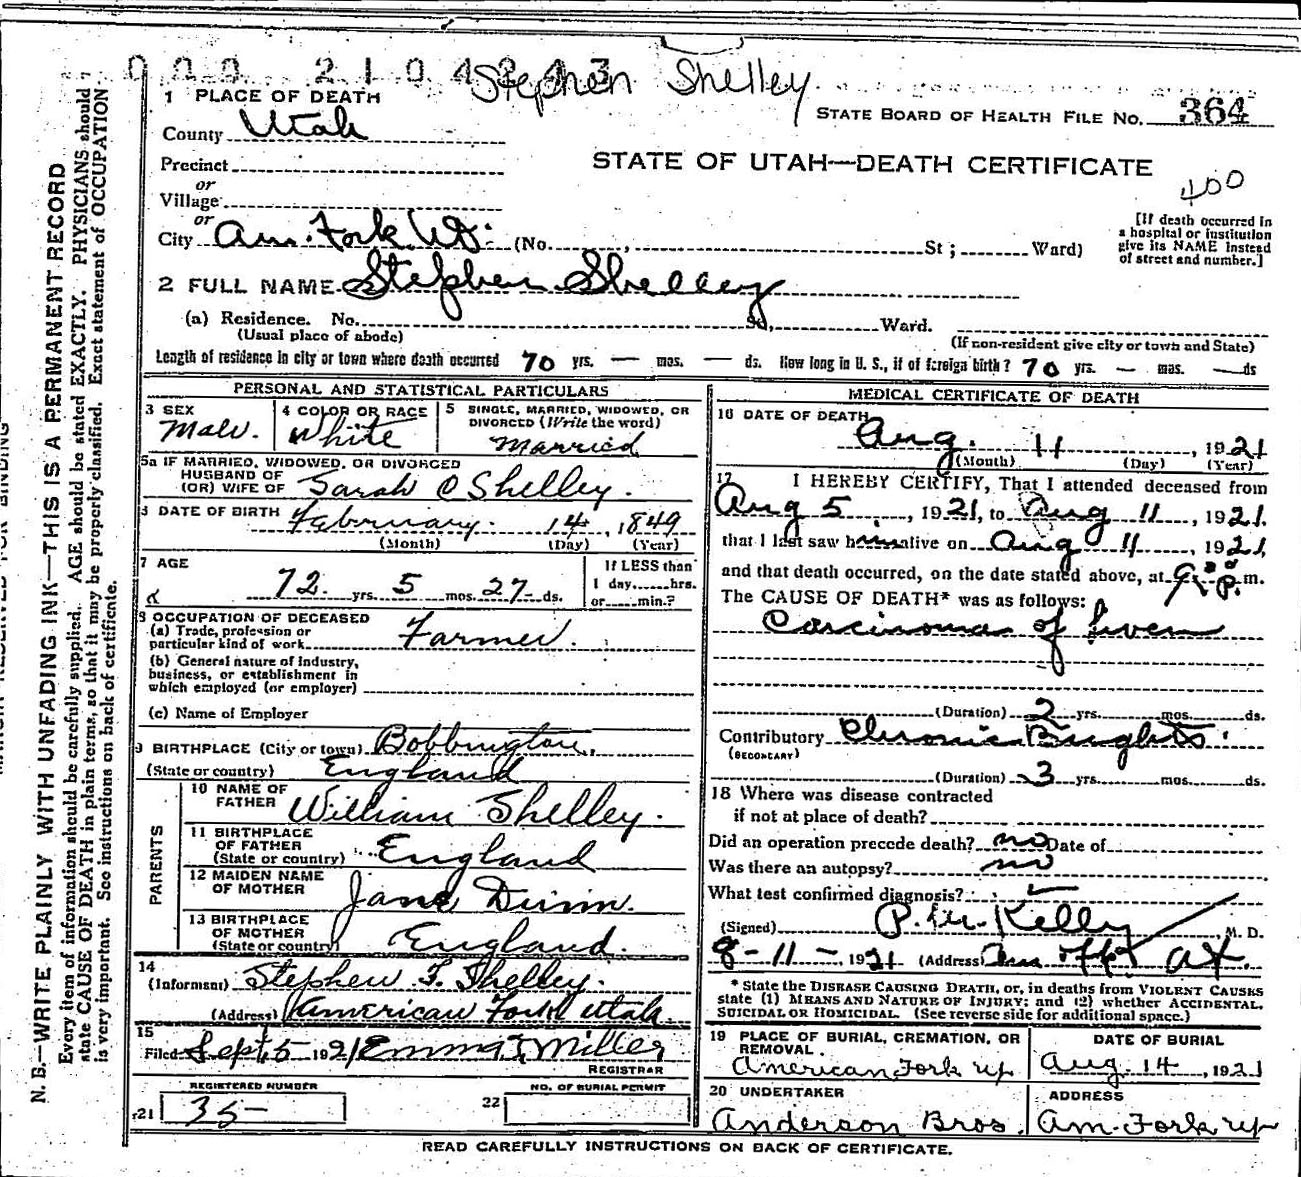 000 2104343 Stephen Shelley
1 PLACE OF DEATH
STATE BOARD OF HEALTH FILE NO. 364
County Utah
STATE OF UTAH—DEATH CERTIFICATE
Precinct
400
or
Village
or
City Am. Fork (No. , St ; Ward)
[If death occurred in
a hospital or institution
give its NAME instead
of street and number.]
2 FULL NAME Stephen Shelley
(a) Residence. No. St, Ward.
(Usual place of abode) (If non-resident give city or town and State)
Length of residence in city or town where death occurred 70 yrs. — mos. — ds. How long in U. S., if of foreign birth? 70 yrs. — mos. — ds
PERSONAL AND STATISTICAL PARTICULARS
3 SEX
Male.
4 COLOR OR RACE
White
5 SINGLE, MARRIED, WIDOWED, OR
DIVORCED (Write the word)
Married
5a IF MARRIED, WIDOWED, OR DIVORCED
HUSBAND OF
(OR) WIFE OF Sarah C Shelley.
6 DATE OF BIRTH February. 14, 1849
(Month) (Day) (Year)
7 AGE
72 yrs. 5 mos. 27 ds.
If LESS than
1 day, hrs.
or min.?
8 OCCUPATION OF DECEASED
(a) Trade, profession or
particular kind of work Farmer.
(b) General nature of Industry,
business, or establishment in
which employed (or employer)
(c) Name of Employer
9 BIRTHPLACE (City or town) Bobbington,
(State or country) England
PARENTS
10 NAME OF
FATHER William Shelley.
11 BIRTHPLACE
OF FATHER
(State or country) England
12 MAIDEN NAME
OF MOTHER Jane Dunn.
13 BIRTHPLACE
OF MOTHER
(State or country) England.
14
(Informant) Stephen F. Shelley.
(Address) American Fork Utah
15
Filed Sept 5 1921 Emma J Miller
REGISTRAR
REGISTERED NUMBER
21 35-
NO. OF BURIAL PERMIT
22
MEDICAL CERTIFICATE OF DEATH
16 DATE OF DEATH
Aug. 11, 1921
(Month) (Day) (Year)
17 I HEREBY CERTIFY, That I attended deceased from
Aug 5, 1921, to Aug 11, 1921.
that I last saw him alive on Aug 11, 1921,
and that death occurred, on the date stated above, at 9 P. m.
The CAUSE OF DEATH* was as follows:
Carcinoma of liver
(Duration) 2 yrs. mos. ds.
Contributory Chronic Brights.
(SECONDARY)
(Duration) 3 yrs. mos. ds.
18 Where was disease contracted
if not at place of death?
Did an operation precede death? no Date of
Was there an autopsy? no
What test confirmed diagnosis?
(Signed) P. M. Kelly M. D.
8-11-, 1921 (Address) Am
* State the DISEASE CAUSING DEATH, or, in deaths from VIOLENT CAUSES
state (1) MEANS AND NATURE OF INJURY; and (2) whether ACCIDENTAL,
SUICIDAL OR HOMICIDAL. (See reverse side for additional space.)
19 PLACE OF BURIAL, CREMATION, OR
REMOVAL
American Fork
DATE OF BURIAL
Aug. 14, 1921
20 UNDERTAKER
Anderson Bros.
ADDRESS
Am. Fork
READ CAREFULLY INSTRUCTIONS ON BACK OF CERTIFICATE.
N. B.—WRITE PLAINLY WITH UNFADING INK—THIS IS A PERMANENT RECORD
Every item of information should be carefully supplied. AGE should be stated EXACTLY. PHYSICIANS should
state CAUSE OF DEATH in plain terms, so that it may be properly classified. Exact statement of OCCUPATION
is very important. See instructions on back of certificate.